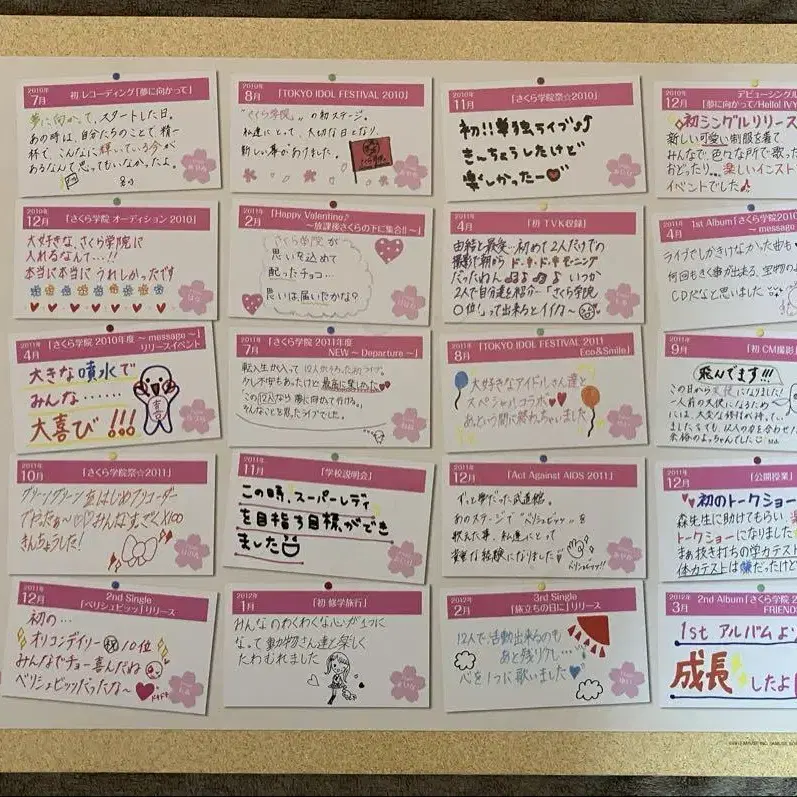 2010年
7月
初 レコーディング「夢に向かって」
夢に向かって、スタートした日。
あの時は、自分たちのことで精一
杯で、こんなに輝いている今が
あるなんて思ってもいなかったよ。
2010年
8月
「TOKYO IDOL FESTIVAL 2010」
"さくら学院"の初ステージ。
私達にとって、大切な日となり、
新しい事がありました。
2010年
11月
「さくら学院祭☆2010」
初!!単独ライブ♪
きんちょうしたけど
楽しかったー♥
2010年
12月
デビューシングル
「夢に向かって/Hello! IVY
初シングルリリース
新しい可愛い制服を着て
みんなで、色々な所で歌った
おどったり…楽しいインスト
イベントでした♪
2010年
12月
「さくら学院 オーディション 2010」
大好きな、さくら学院に
入れるなんて…!!
本当に本当にうれしかったです
2011年
2月
「Happy Valentine♪
~放課後さくらの下に集合!!~」
さくら学院が
思いを込めて
配ったチョコ…
思いは、届いたかな?
2011年
4月
「初 TVK収録」
由結と最愛…初めて2人だけでの
撮影で朝から ド・キ・ド・キ モーニング
だったねん ♪♪ いつか
2人で自分達を紹介…「さくら学院
〇位!」って出来るとイイな~
2011年
4月
1st Album「さくら学院2010
~message
ライブでしかきけなかった曲も♥
何回もきく事が出来る、宝物の
CDだなと思いました
2011年
4月
「さくら学院 2010年度 ~message~」
リリースイベント
大きな噴水で
みんな……
大喜び!!!
2011年
7月
「さくら学院 2011年度
NEW ~Departure~」
転入生が入って12人になった初ライブ。
少し不安もあったけど最高に楽しかった♥
"この12人なら夢に向かって行ける。"
そんなことを思ったライブでした。
2011年
8月
「TOKYO IDOL FESTIVAL 2011
Eco&Smile」
大好きなアイドルさん達と
スペシャルコラボ♥
あっという間に終わっちゃいました
2011年
9月
「初 CM撮影」
飛んでます!!!
この日から天使になりました!
一人前の天使になるため
には、大変な修行が待ってい
2011年
10月
「さくら学院祭☆2011」
きんちょうした!
2011年
11月
「学校説明会」
この時、スーパーレディ
を目指す目標ができ
ました
2011年
12月
「Act Against AIDS 2011」
ずっと夢だった武道館。
あのステージで"ベリシュビッツ"を
歌えた事、私達にとって
貴重な経験になりました
2011年
12月
「公開授業」
初のトークショー
森先生に助けてもらい、
トークショーになりました
まぁ抜き打ちの学力テスト
体力テストは嫌だったけど
2011年
12月
2nd Single
「ベリシュビッツ」リリース
初の…
オリコンデイリー 祝 10位
みんなでチョー喜んだね
ベリシュビッツだったな~
2012年
1月
「初 修学旅行」
みんなのわくわくな心が1つに
なって動物さん達と楽しく
たわむれました
2012年
2月
3rd Single
「旅立ちの日に」リリース
12人で、活動出来るのも
あと残り少し…
心を1つに歌いました
2012年
3月
2nd Album「さくら学院 2
FRIENDS
1st アルバムより
成長したよ